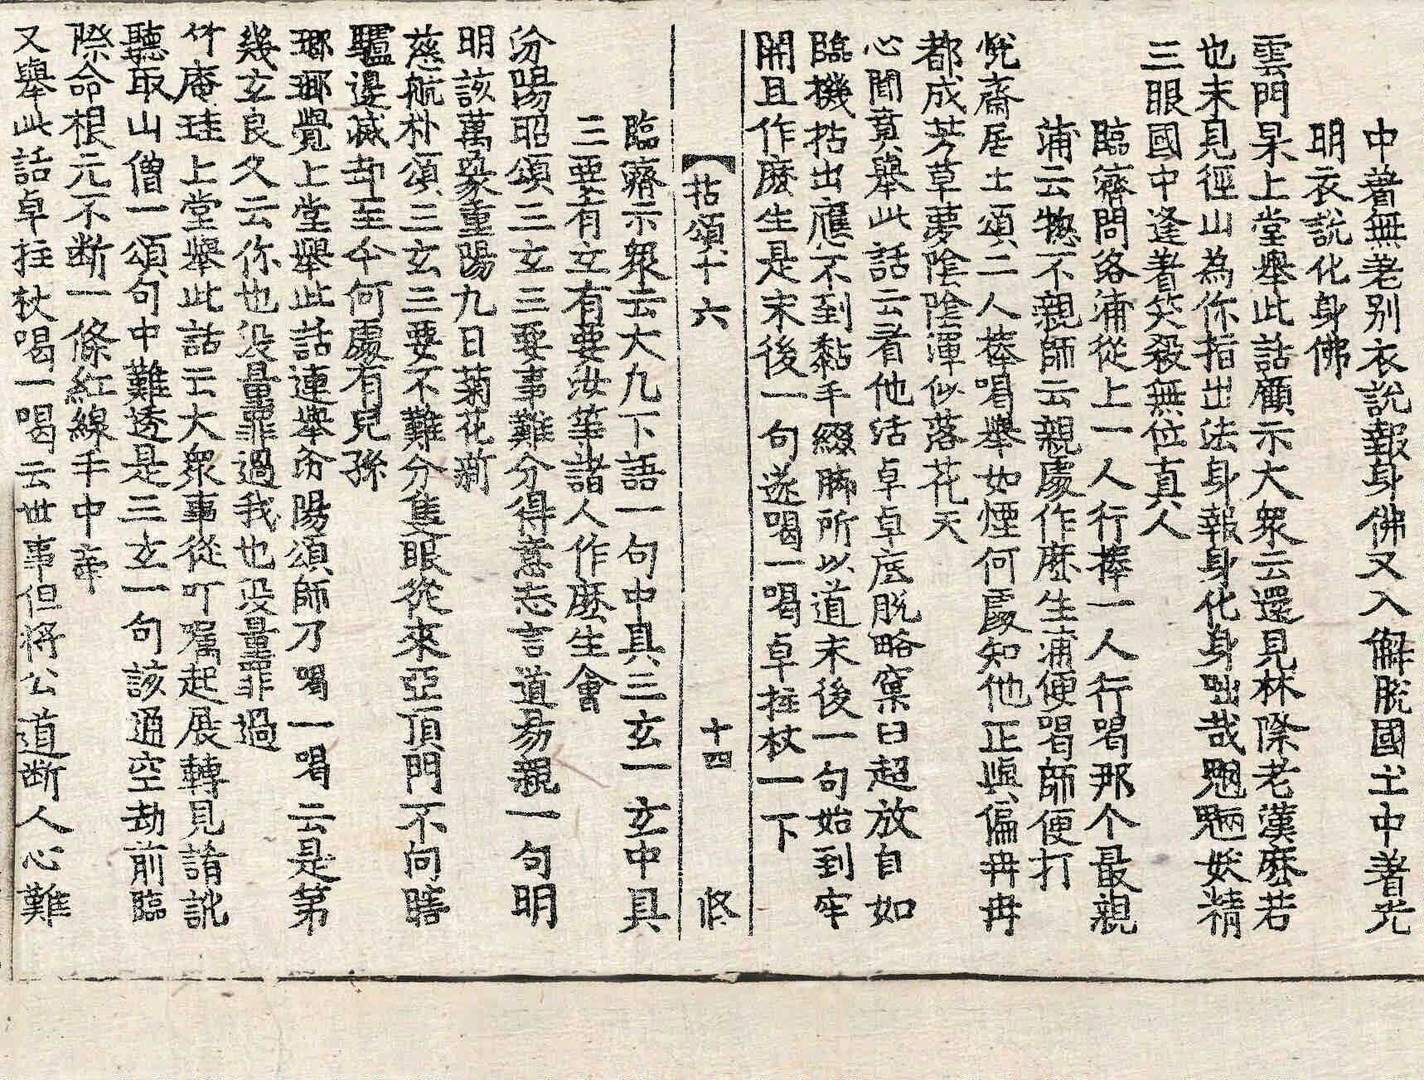 中著無老别衣說報身佛又入解脫國土中著光
明衣說化身佛
雲門杲上堂舉此話顧示大衆云還見林際老漢麽若
也未見徑山為你指出法身報身化身咄哉魍魎妖精
三眼國中逢著笑殺無位真人
臨濟問洛浦從上一人行棒一人行喝那个最親
蒲云揔不親師云親處作麽生浦便喝師便打
恱齋居士頌二人棒喝舉如煙何處知他正與偏冉冉
都成芳草夢陰陰渾似落花天
心聞賁舉此話云看他活卓卓底脫略窠臼超放自如
臨機拈出應不到黏手綴脚所以道末後一句始到牢
關且作麽生是末後一句遂喝一喝卓拄杖一下
拈頌十六 十四 修
臨濟示衆云大凡下語一句中具三玄一玄中具
三要有玄有要汝等諸人作麽生會
汾陽昭頌三玄三要事難分得意忘言道易親一句明
明該萬象重陽九日菊花新
慈航朴頌三玄三要不難分隻眼從來亞頂門不向瞎
驢邊滅却至今何處有兒孫
瑯琊覺上堂舉此話連舉汾陽頌師乃喝一喝云是第
幾玄良久云你也没量罪過我也没量罪過
竹庵珪上堂舉此話云大衆事從叮囑起展轉見誵訛
聽取山僧一頌句中難透是三玄一句該通空劫前臨
際命根元不断一條紅線手中牽
又舉此話卓拄杖喝一喝云世事但将公道断人心難